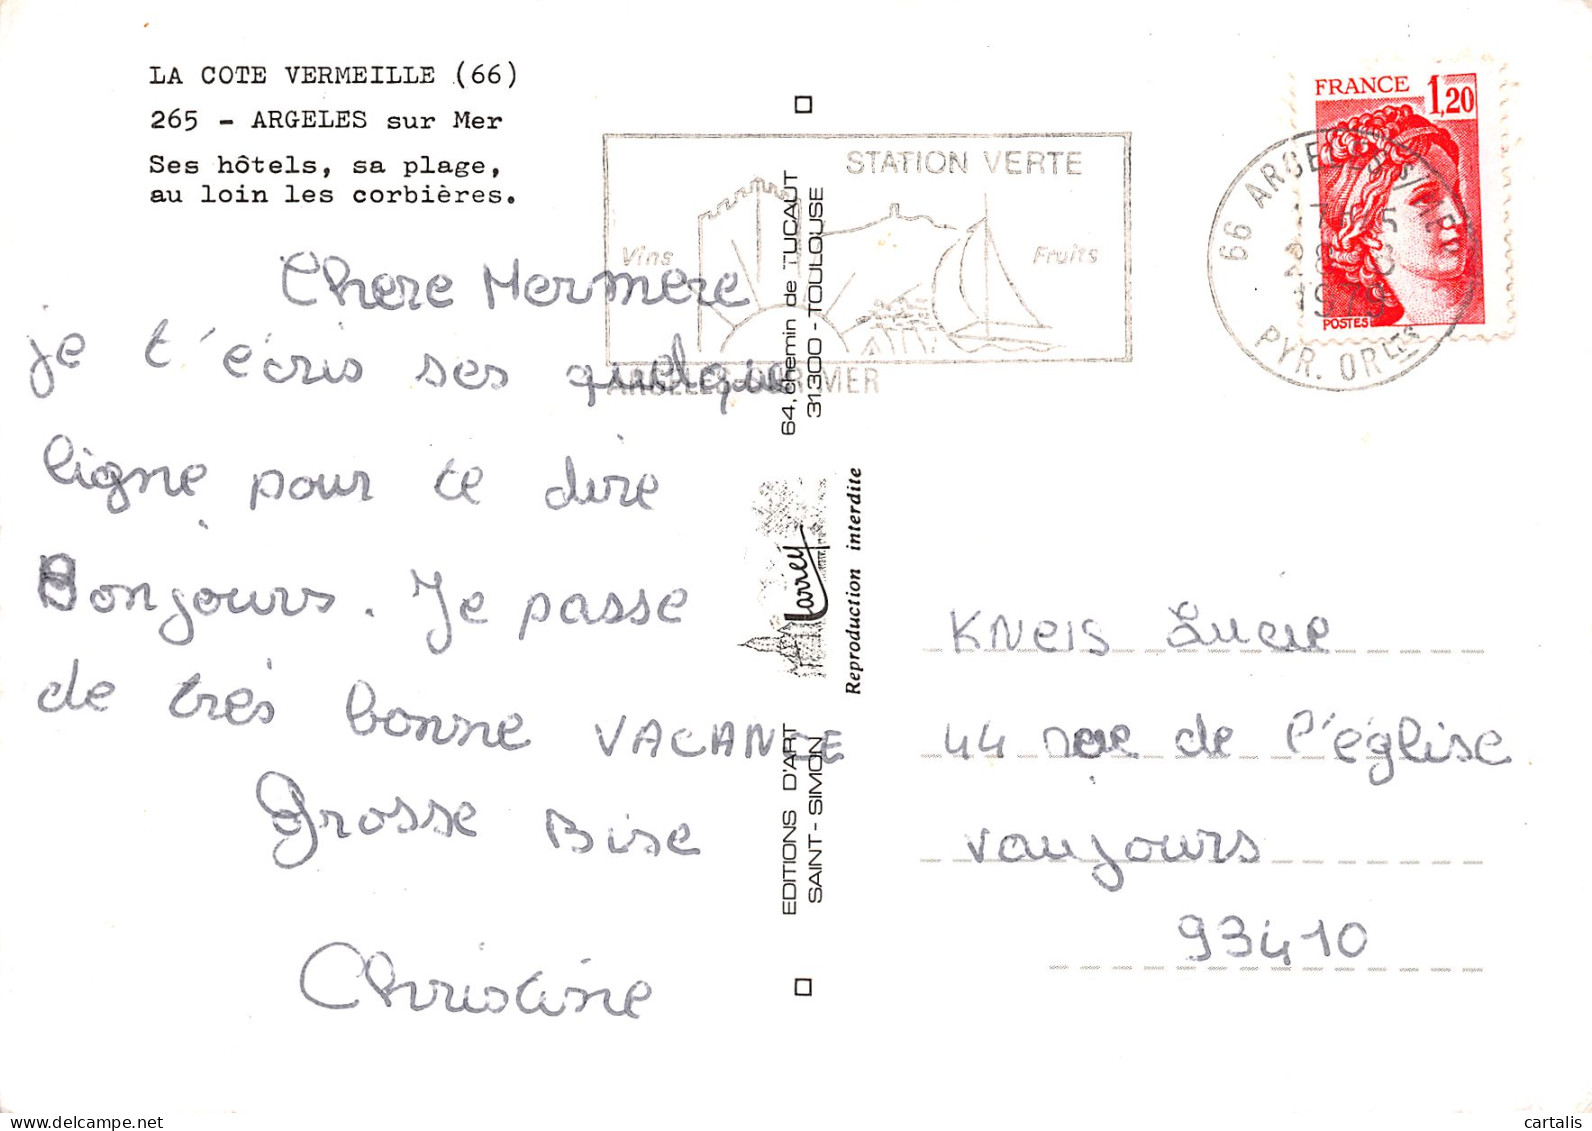 LA COTE VERMEILLE (66)
265 - ARGELES sur Mer
Ses hôtels, sa plage,
au loin les corbières.
Chere Mermere
je t'écris ses quelque
ligne pour te dire
Bonjours. Je passe
de très bonne VACANCE
Grosse Bise
Christine
STATION VERTE
Vins
Fruits
ARGELES SUR MER
64, chemin de TUCAUT
31300 - TOULOUSE
Larrey
Reproduction interdite
EDITIONS D'ART
SAINT-SIMON
FRANCE 1,20
POSTES
66 ARGELES S/MER
1979
PYR. ORLES
KNEIS Lucie
44 rue de l'église
Vaujours
93410
delcampe.net
cartalis